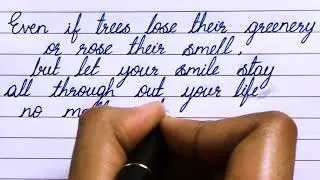 Even if trees lose their greenery
or rose their smell,
but let your smile stay
all through out your life
no